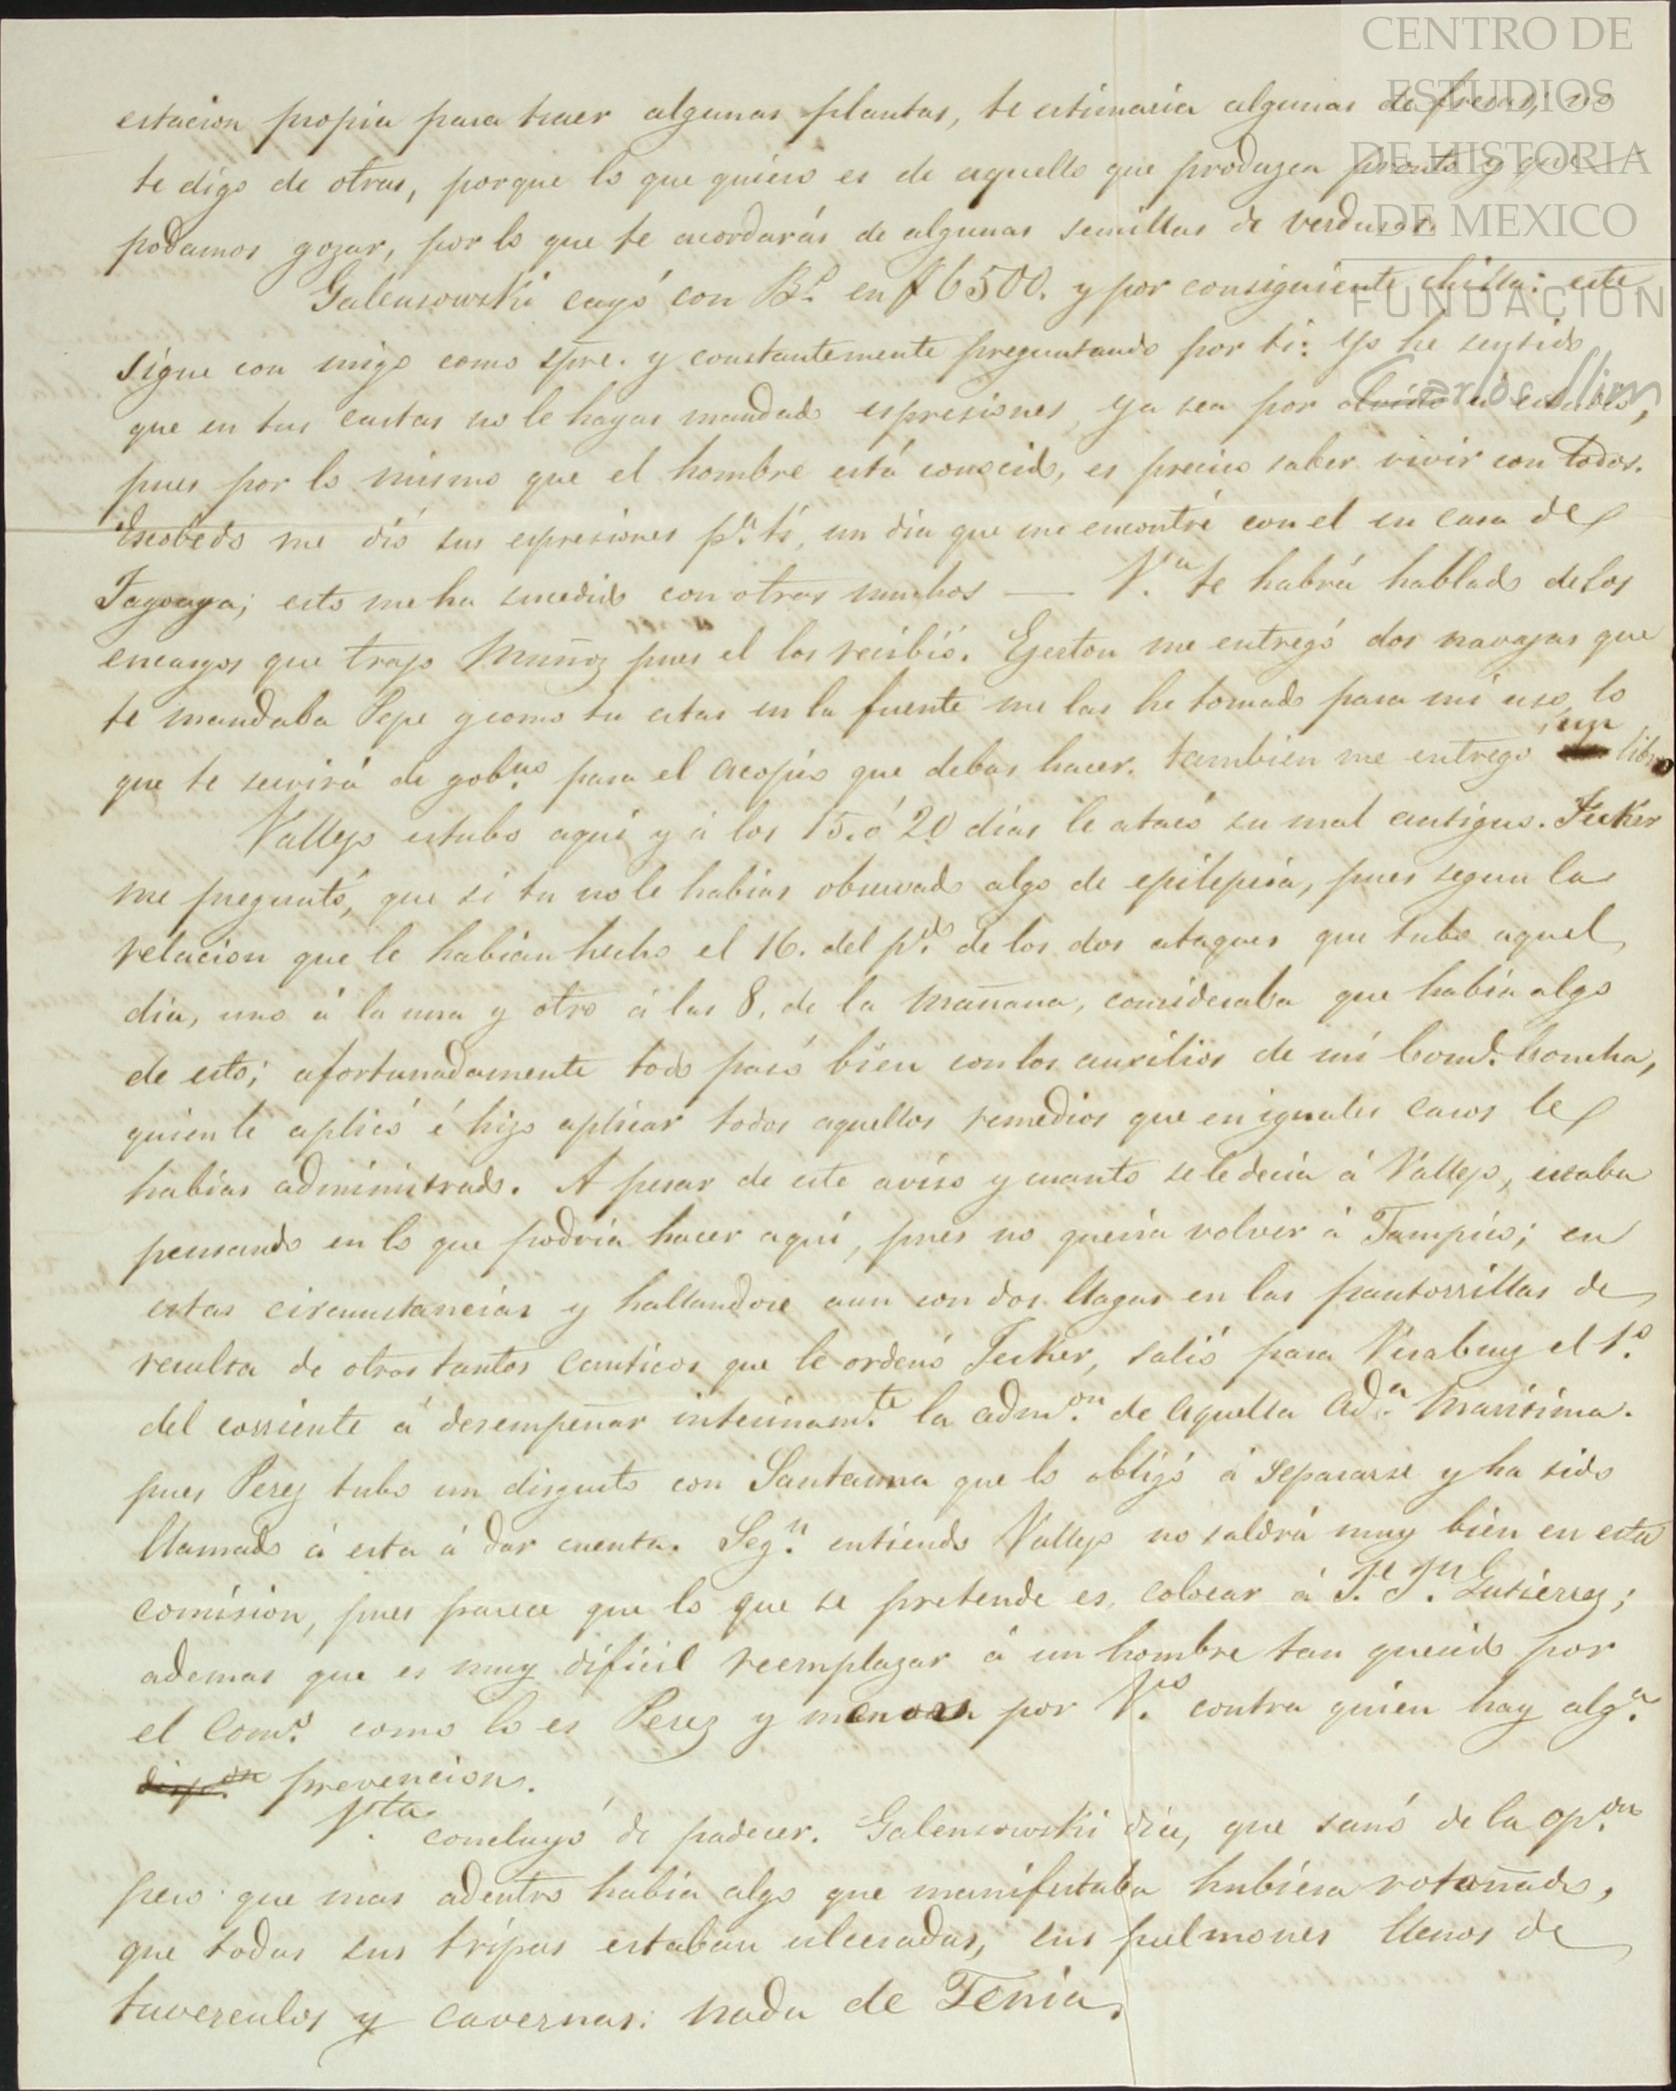 CENTRO DE
ESTUDIOS
DE HISTORIA
DE MEXICO
FUNDACIÓN
Carlos Slim
estacion propia para traer algunas plantas, te estimaria algunas de fresas; no
te digo de otras, porque lo que quiero es de aquello que produzca pronto y que
podamos gozar, por lo que te acordarás de algunas semillas de verduras.
Galensowski cayó con B.º en $6500. y por consiguiente chilla: este
sigue con migo como spre. y constantemente preguntando por ti: Yo he sentido
que en tus cartas no le hayas mandado espresiones, ya sea por olvido ó
pues por lo mismo que el hombre está conocido, es preciso saber vivir con todos.
Escobedo me dió sus espresiones p.ª tí, un dia que me encontré con el en casa de
Fagoaga; esto me ha sucedido con otros muchos — V.ª te habrá hablado de los
encargos que trajo Muñoz pues el los recibió. Egerton me entregó dos navajas que
te mandaba Pepe y como tu estas en la fuente me las he tomado para mi uso, lo
que te servirá de gob.no para el acopio que debas hacer. tambien me entregó un libro
Vallejo estubo aqui y á los 15. ó 20 dias le atacó su mal antiguo. Jecker
me preguntó, que si tu no le habias obsevado algo de epilepsia, pues segun la
relacion que le habian hecho el 16. del p.do de los dos ataques que tubo aquel
dia, uno á la una y otro á las 8, de la mañana, consideraba que habia algo
de esto; afortunadamente todo pasó bien con los auxilios de mi Com.e Concha,
quien le aplicó é hizo aplicar todos aquellos remedios que en iguales casos le
habias administrado. A pesar de este aviso y cuanto se le decia á Vallejo, estaba
pensando en lo que podria hacer aqui, pues no queria volver á Tampico; en
estas circunstancias y hallandose aun con dos llagas en las pantorrillas de
resulta de otros tantos causticos que le ordenó Jecker, salió para Veracruz el 1.º
del corriente á desempeñar interinam.te la adm.on de aquella Ad.ª Maritima.
pues Perez tubo un disgusto con Santanna que lo obligó á separarse y ha sido
llamado á esta á dar cuenta. Seg.n entiendo Vallejo no saldrá muy bien en esta
comision, pues parece que lo que se pretende es, colocar á J.e J.n Gutierrez;
ademas que es muy dificil reemplazar á un hombre tan querido por
el Com.o como lo es Perez y menos por V.º contra quien hay alg.ª
prevencion.
V.ta concluyó de padecer. Galensowski dice, que sanó de la op.on
pero que mas adentro habia algo que manifestaba hubiera retoñado,
que todas sus tripas estaban ulceradas, sus pulmones llenos de
tuverculos y cavernas: nada de Tenia.